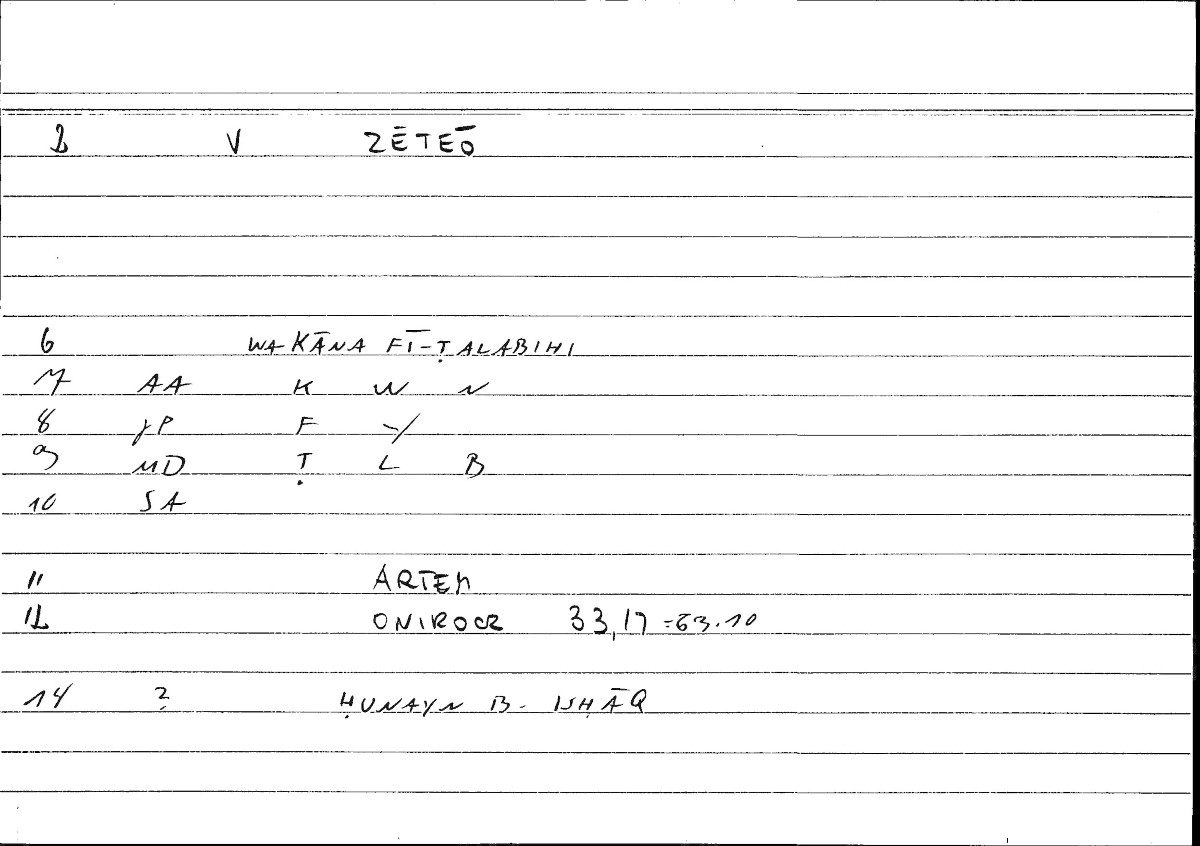 2 V ZĒTEŌ
6 WA-KĀNA FĪ-ṬALABIHI
7 AA K W N
8 JP F Y
9 MD Ṭ L B
10 SA
11 ARTEM
12 ONIROCR 33,17 = 63.10
14 2 ḤUNAYN B. ISḤĀQ